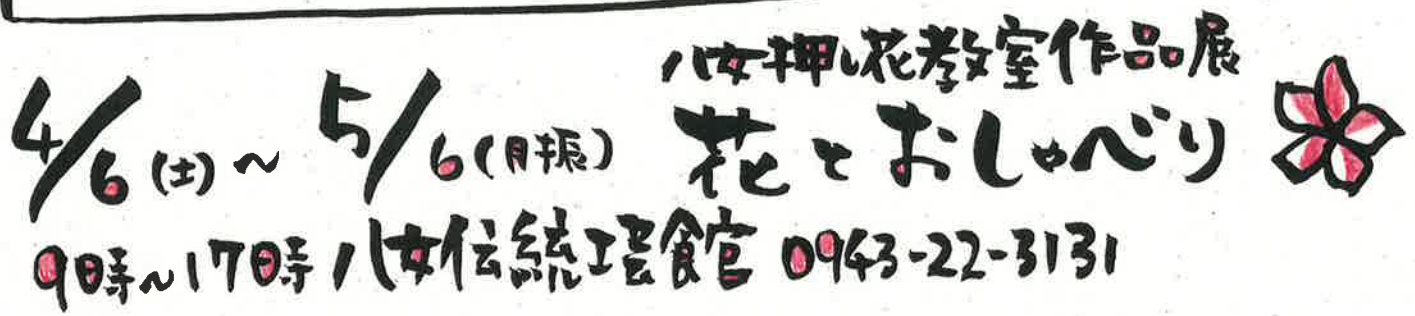 八女押し花教室作品展
4/6(土)～5/6(月振) 花とおしゃべり
9時～17時 八女伝統工芸館 0943-22-3131